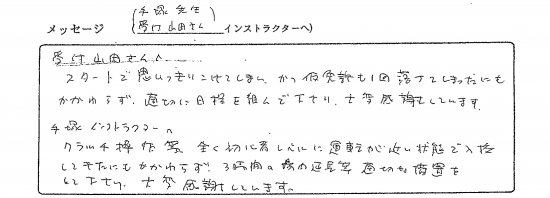 手塚先生
メッセージ(受付山田さん インストラクターへ)
受付山田さんへ
スタートで思いっきりこけてしまい、かつ仮免許も1回落ちてしまったにも
かかわらず、適切に日程を組んで下さり、大変感謝しています。
手塚インストラクターへ
クラッチ操作等、全く初心者レベルに運転が低い状態で入校
してきたにもかかわらず、3時間の延長等適切な措置を
して下さり、大変感謝しています。